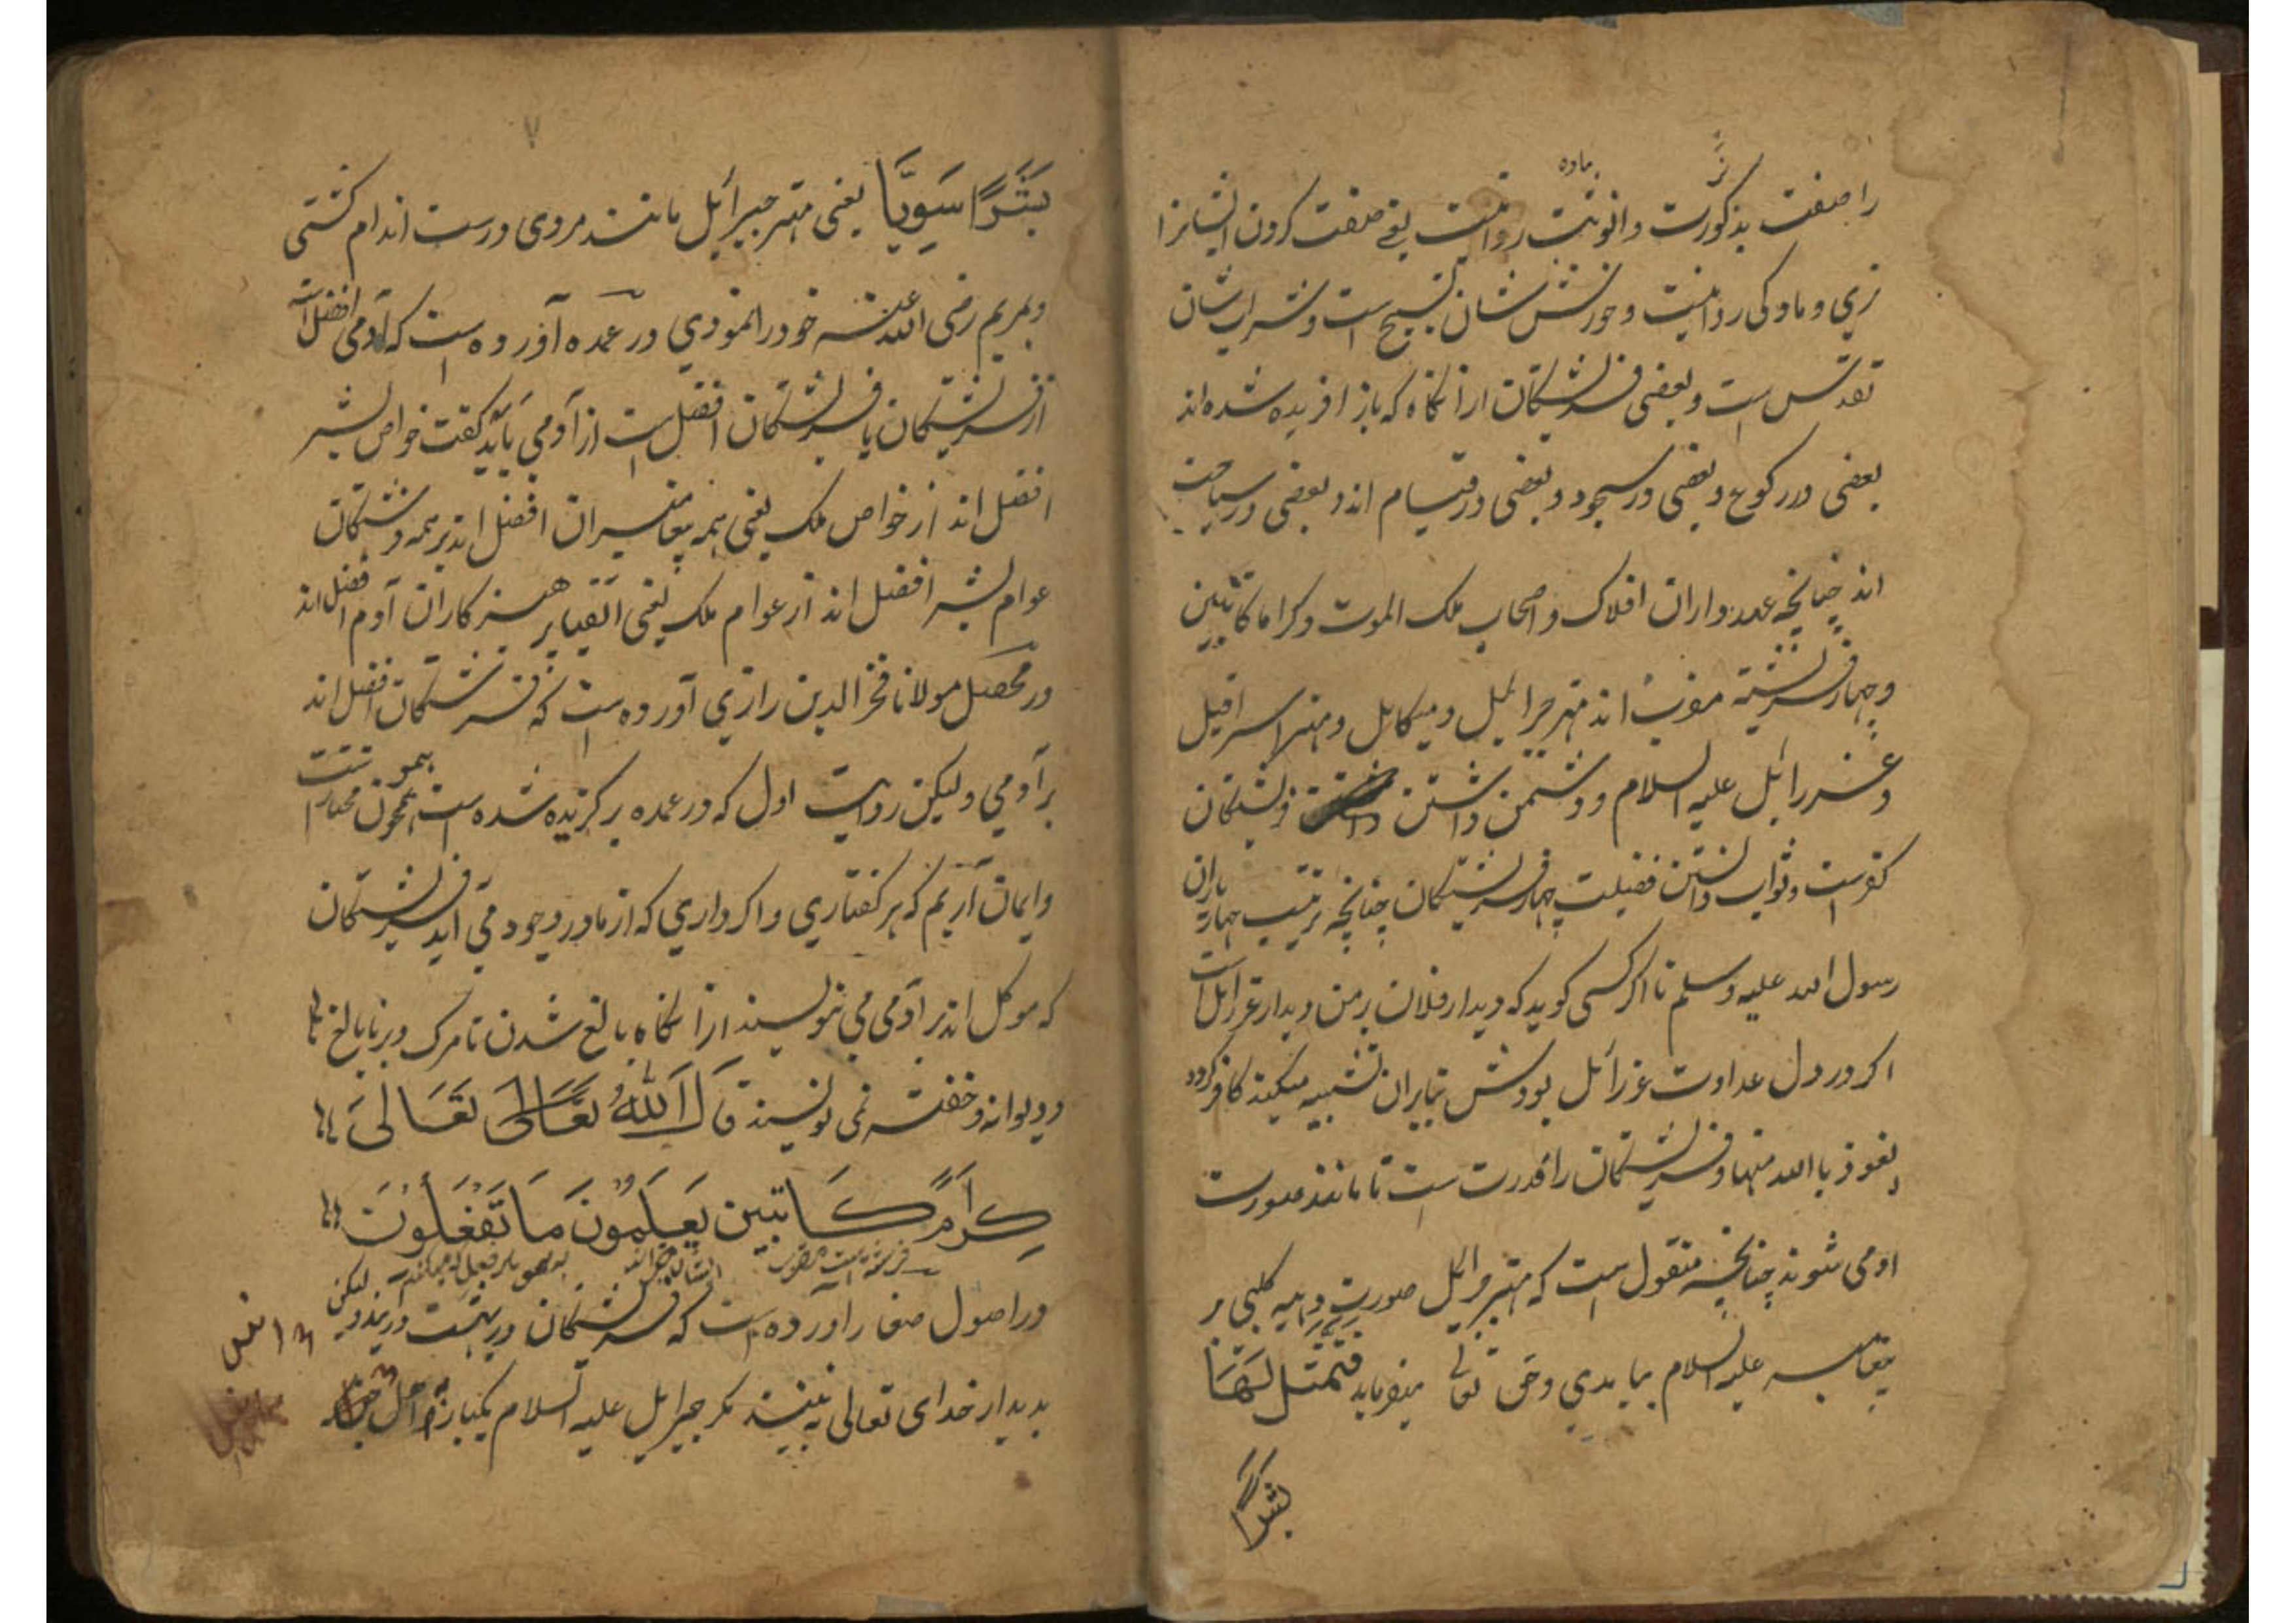 نر
ماده
را صفت بذکورت و انوثیت روا نیست یعنی صفت کردن ایشانرا
نری و مادگی روا نیست و خورشش شان تسبیح است و شراب شان
تقدس است و بعضی فرشتگان ازانگاه که باز افریده شده اند
بعضی در رکوع و بعضی در سجود و بعضی در قیام اند و بعضی در سیاحت
اند چنانچه عدد داران افلاک و اصحاب ملک الموت و کراما کاتبین
و چهار فرشته مقرب اند مهتر جبرائیل و میکایل و مهتر اسرافیل
و عزرائل علیه السلام و دشمن داشتن فرشتگان
کفرست و ثواب دانستن فضیلت چهار فرشتگان چنانچه ترتیب چهار یاران
رسول الله علیه وسلم تا اگر کسی کوید که دیدار فلان بر من دیدار عزرائل است
اکر در دل عداوت عزرائل بودش بنابران تشبیه میکند کافر کردد
نعوذ باالله منها و فرشتگان را قدرت است تا مانند صورت
ادمی شوند چنانچه منقول است که مهتر جبرائل صورت دحیه کلبی بر
پیغامبر علیه السلام بیامدی و حق تعالی میفرماید فتمثل لها
بشرا
۷
بَشَرًا سَوِيًّا یعنی مهتر جبرائل مانند مردی درست اندام کشتی
و بمریم رضی الله عنه خود را نمودی در عمده آورده است که آدمی افضل است
از فرشتگان یا فرشتگان افضل است از آدمی باید کفت خواص بشر
افضل اند از خواص ملک یعنی همه پیغامبران افضل اند بر همه فرشتگان
عوام بشر افضل اند از عوام ملک یعنی اتقیا پرهیزکاران آدم افضل اند
در محصل مولانا فخر الدین رازی آورده است که فرشتگان افضل اند
بر آدمی ولیکن روایت اول که در عمده برکزیده شده است همچون مختار
و ایمان آریم که هر کفتاری و اکرداری که از ما در وجود می آید فرشتگان
که موکل اند بر آدمی می نویسند ازانگاه بالغ شدن تا مرک و بر نابالغ
و دیوانه و خفته نمی نویسند قَالَ اللهُ تَعَالَى تَعَالَى
كِرَامًا كَاتِبِين يَعْلَمُونَ مَا تَفْعَلُونَ
در اصول صفار آورده است که فرشتگان در بهشت درآیند ولیکن
بدیدار خدای تعالی نه بینند مکر جبرایل علیه السلام یکبار